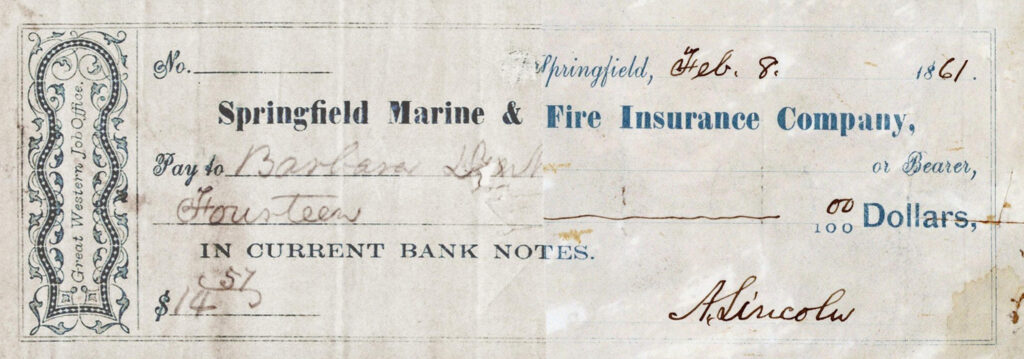 Great Western Job Office.
No.
Springfield, Feb. 8. 1861.
Springfield Marine & Fire Insurance Company,
Pay to Barbara or Bearer,
Fourteen 00/100 Dollars,
IN CURRENT BANK NOTES.
$ 14
A. Lincoln